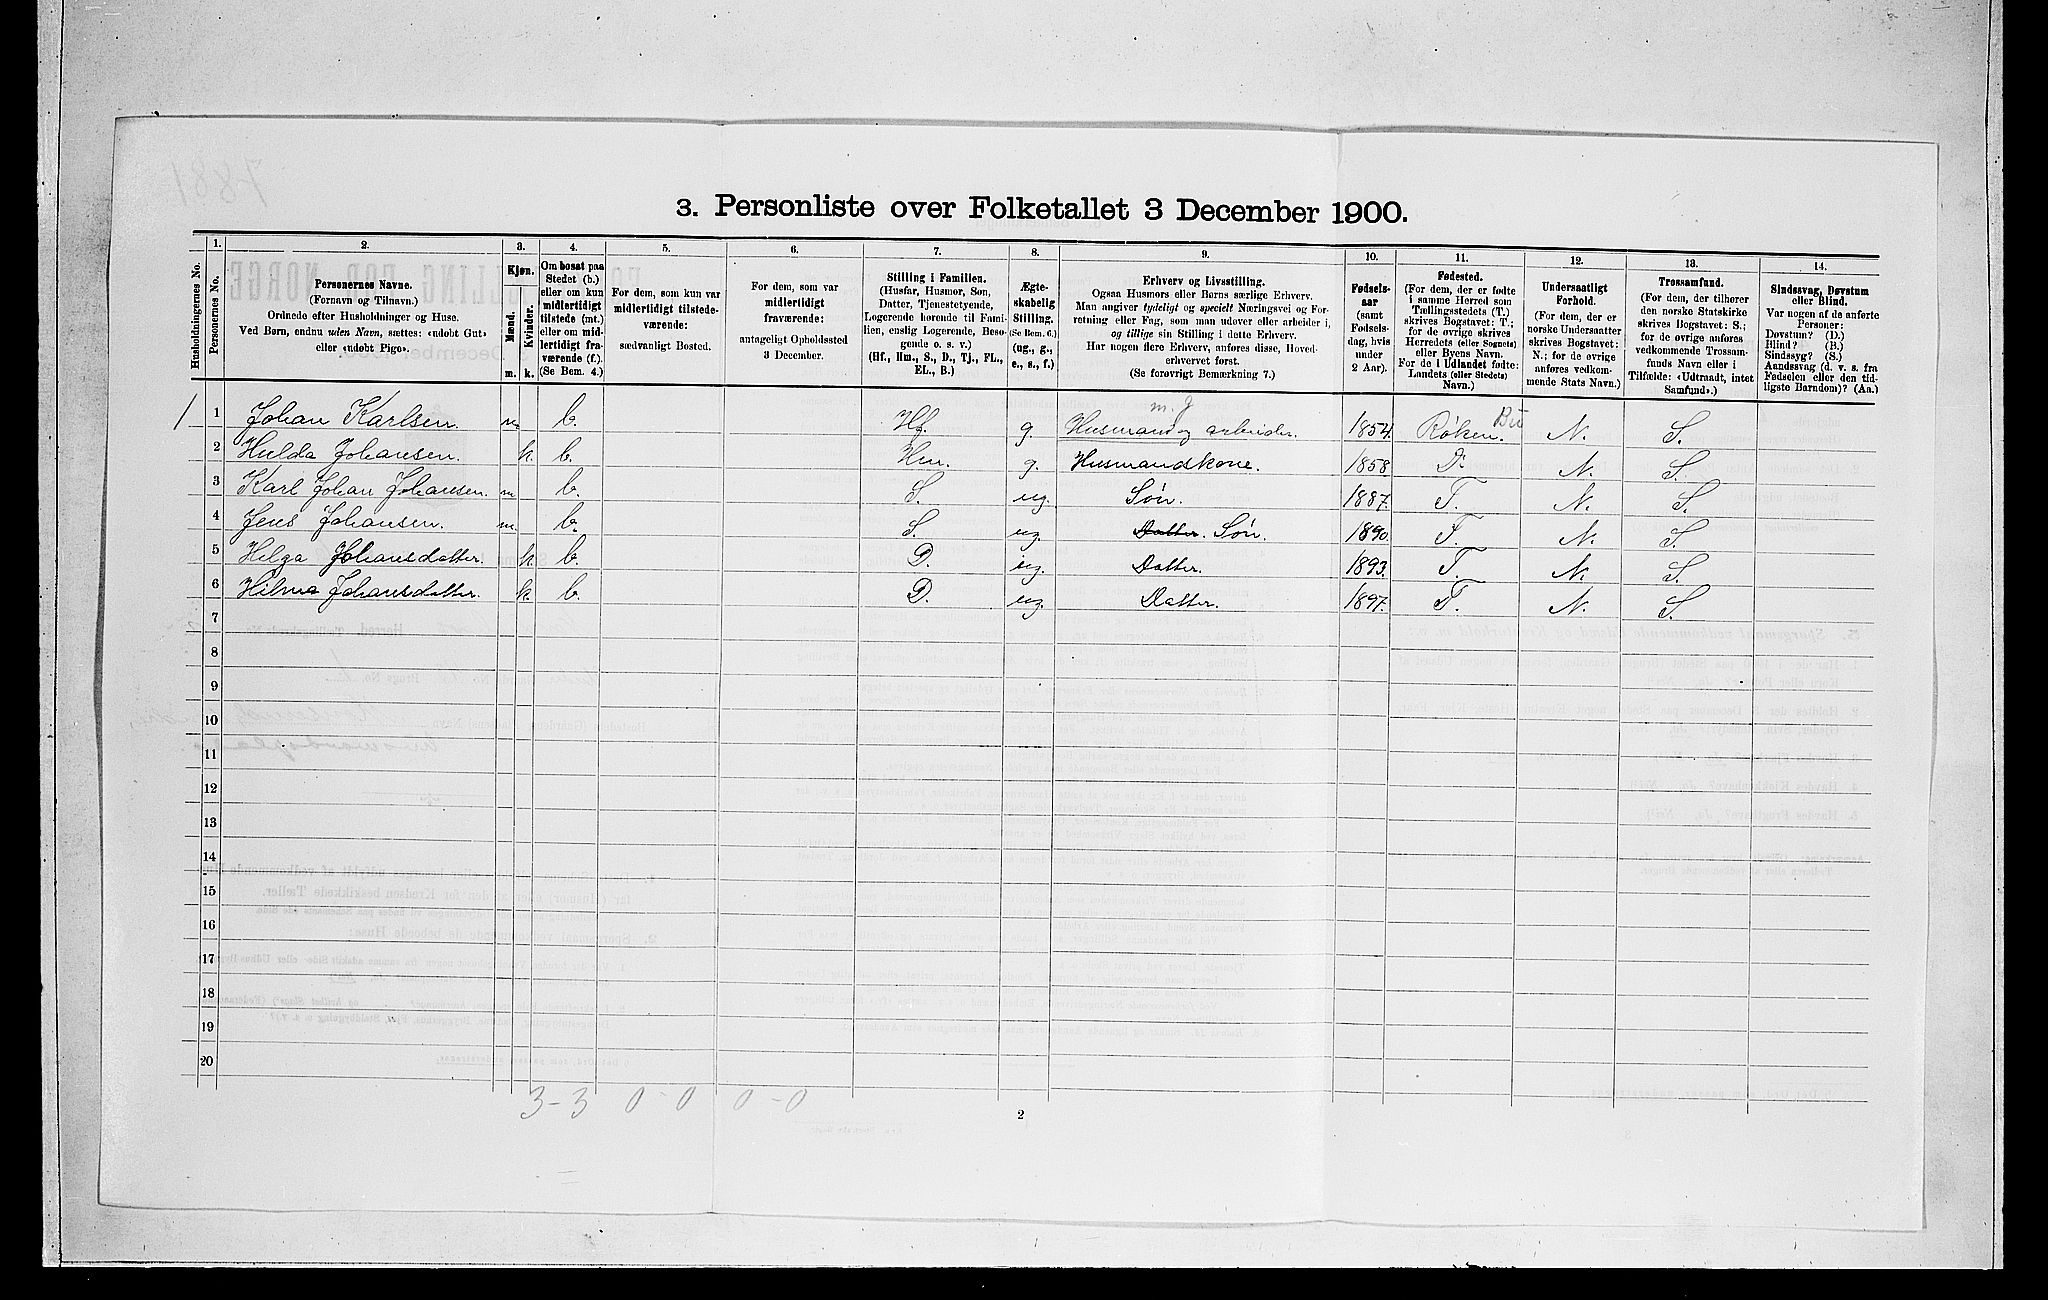 3. Personliste over Folketallet 3 December 1900.
Husholdningernes No.
1.
Personernes No.
2.
Personernes Navne.
(Fornavn og Tilnavn.)
Ordnede efter Husholdninger og Huse.
Ved Børn, endnu uden Navn, sættes: «udøbt Gut»
eller «udøbt Pige».
3.
Kjøn.
Mænd.
Kvinder.
m. k.
4.
Om bosat paa
Stedet (b.)
eller om kun
midlertidigt
tilstede (mt.)
eller om mid-
lertidigt fra-
værende (f.).
(Se Bem. 4.)
5.
For dem, som kun var
midlertidigt tilstede-
værende:
sædvanligt Bosted.
6.
For dem, som var
midlertidigt
fraværende:
antageligt Opholdssted
3 December.
7.
Stilling i Familien.
(Husfar, Husmor, Søn,
Datter, Tjenestetyende,
Logerende hørende til Fami-
lien, enslig Logerende, Besø-
gende o. s. v.)
(Hf., Hm., S., D., Tj., FL.,
EL., B.)
8.
Ægte-
skabelig
Stilling.
(Se Bem. 6.)
(ug., g.,
e., s., f.)
9.
Erhverv og Livsstilling.
Ogsaa Husmors eller Børns særlige Erhverv.
Man angiver tydeligt og specielt Næringsvei og For-
retning eller Fag, som man udøver eller arbeider i,
og tillige sin Stilling i dette Erhverv.
Har nogen flere Erhverv, anføres disse, Hoved-
erhvervet først.
(Se forøvrigt Bemærkning 7.)
10.
Fødsels-
aar
(samt
Fødsels-
dag, hvis
under
2 Aar).
11.
Fødested.
(For dem, der er fødte
i samme Herred som
Tællingsstedets (T.)
skrives Bogstavet: T.;
for de øvrige skrives
Herredets (eller Sognets)
eller Byens Navn.
For de i Udlandet fødte:
Landets (eller Stedets)
Navn.)
12.
Undersaatligt
Forhold.
(For dem, der er
norske Undersaatter
skrives Bogstavet:
N.; for de øvrige
anføres vedkom-
mende Stats Navn.)
13.
Trossamfund.
(For dem, der tilhører
den norske Statskirke
skrives Bogstavet: S.;
for de øvrige anføres
vedkommende Trossam-
funds Navn eller i
Tilfælde: «Udtraadt, intet
Samfund».)
14.
Sindssvag, Døvstum
eller Blind.
Var nogen af de anførte
Personer:
Døvstum? (D.)
Blind? (B.)
Sindssyg? (S.)
Aandssvag (d. v. s. fra
Fødselen eller den tid-
ligste Barndom)? (Aa.)
m. J Bu
1 1 Johan Karlsen. m. b. Hf. g. Husmand og arbeider. 1854. Røken. N. S.
2 Hulda Johansen. k. b. Hm. g. Husmandskone. 1858 N. S.
3 Karl Johan Johansen. m b. S. ug. Søn. 1887. T. N. S.
4 Jens Johansen. m. b. S. ug. Datter. Søn. 1890. T. N. S.
5 Helga Johansdatter. k. b. D. ug. Datter. 1893. T. N. S.
6 Hilma Johansdatter. k. b. D. ug. Datter. 1897. T. N. S.
7
8
9
10
11
12
13
14
15
16
17
18
19
20
3-3 0-0 0-0
2